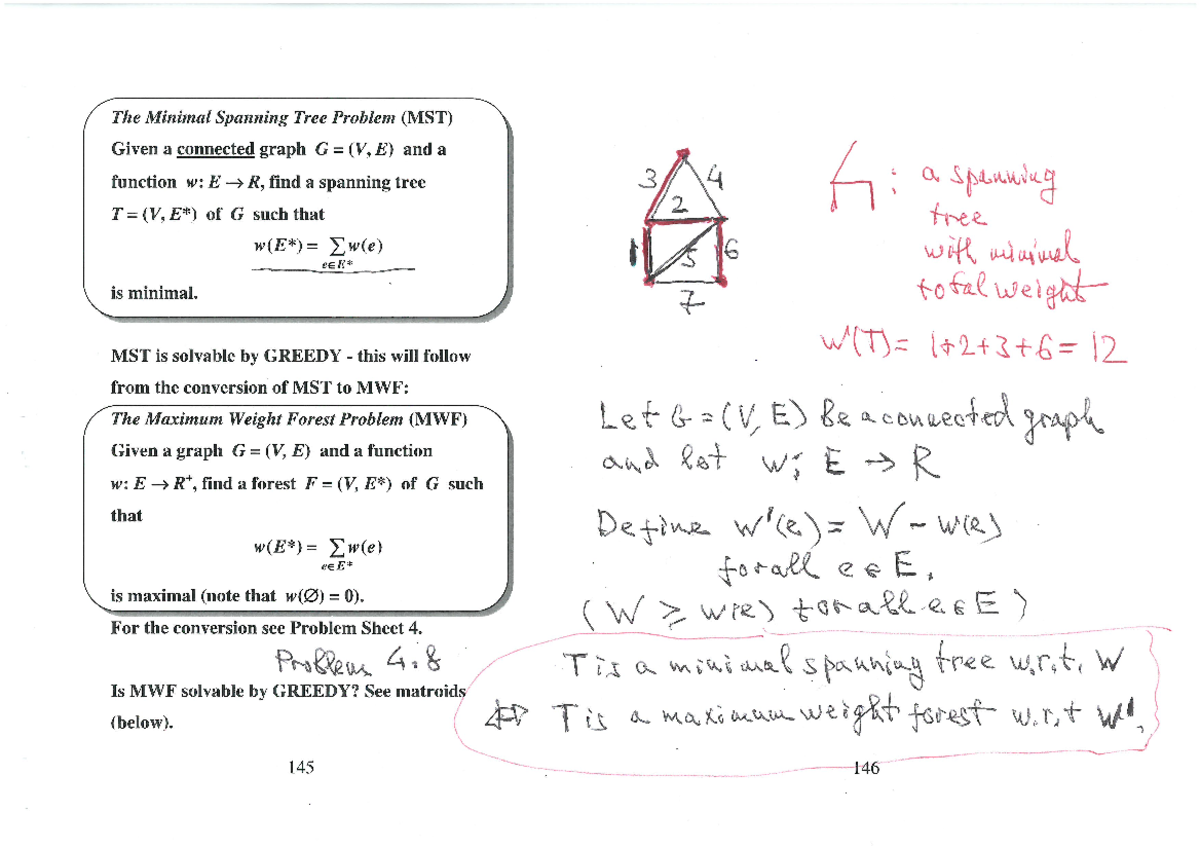 The Minimal Spanning Tree Problem (MST)
Given a connected graph G = (V, E) and a
function w: E → R, find a spanning tree
T = (V, E*) of G such that
w(E*) = ∑w(e)
e∈E*
is minimal.
MST is solvable by GREEDY - this will follow
from the conversion of MST to MWF:
The Maximum Weight Forest Problem (MWF)
Given a graph G = (V, E) and a function
w: E → R⁺, find a forest F = (V, E*) of G such
that
w(E*) = ∑w(e)
e∈E*
is maximal (note that w(∅) = 0).
For the conversion see Problem Sheet 4.
Problem 4.8
Is MWF solvable by GREEDY? See matroids
(below).
145
3 4
2
1 5 6
7
: a spanning
tree
with minimal
total weight
w(T) = 1+2+3+6 = 12
Let G = (V, E) be a connected graph
and let w: E → R
Define w'(e) = W - w(e)
for all e ∈ E.
(W ≥ w(e) for all e ∈ E)
T is a minimal spanning tree w.r.t. W
⇔ T is a maximum weight forest w.r.t w'.
146